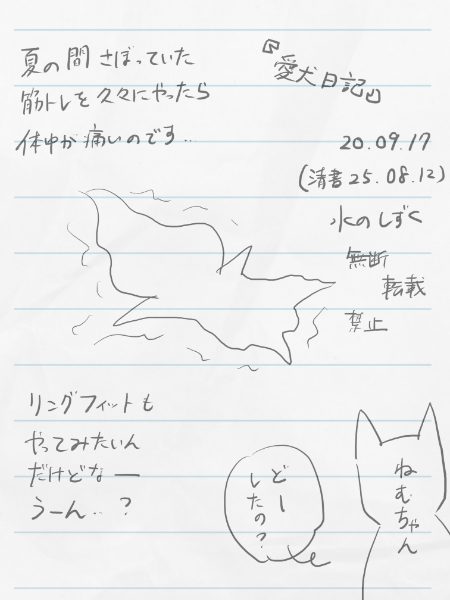 夏の間さぼっていた
筋トレを久々にやったら
体中が痛いのです..
『愛犬日記』
20.09.17
(清書25.08.12)
水のしずく
無断
転載
禁止
リングフィットも
やってみたいん
だけどなー
うーん..?
どー
したの?
ねむちゃん